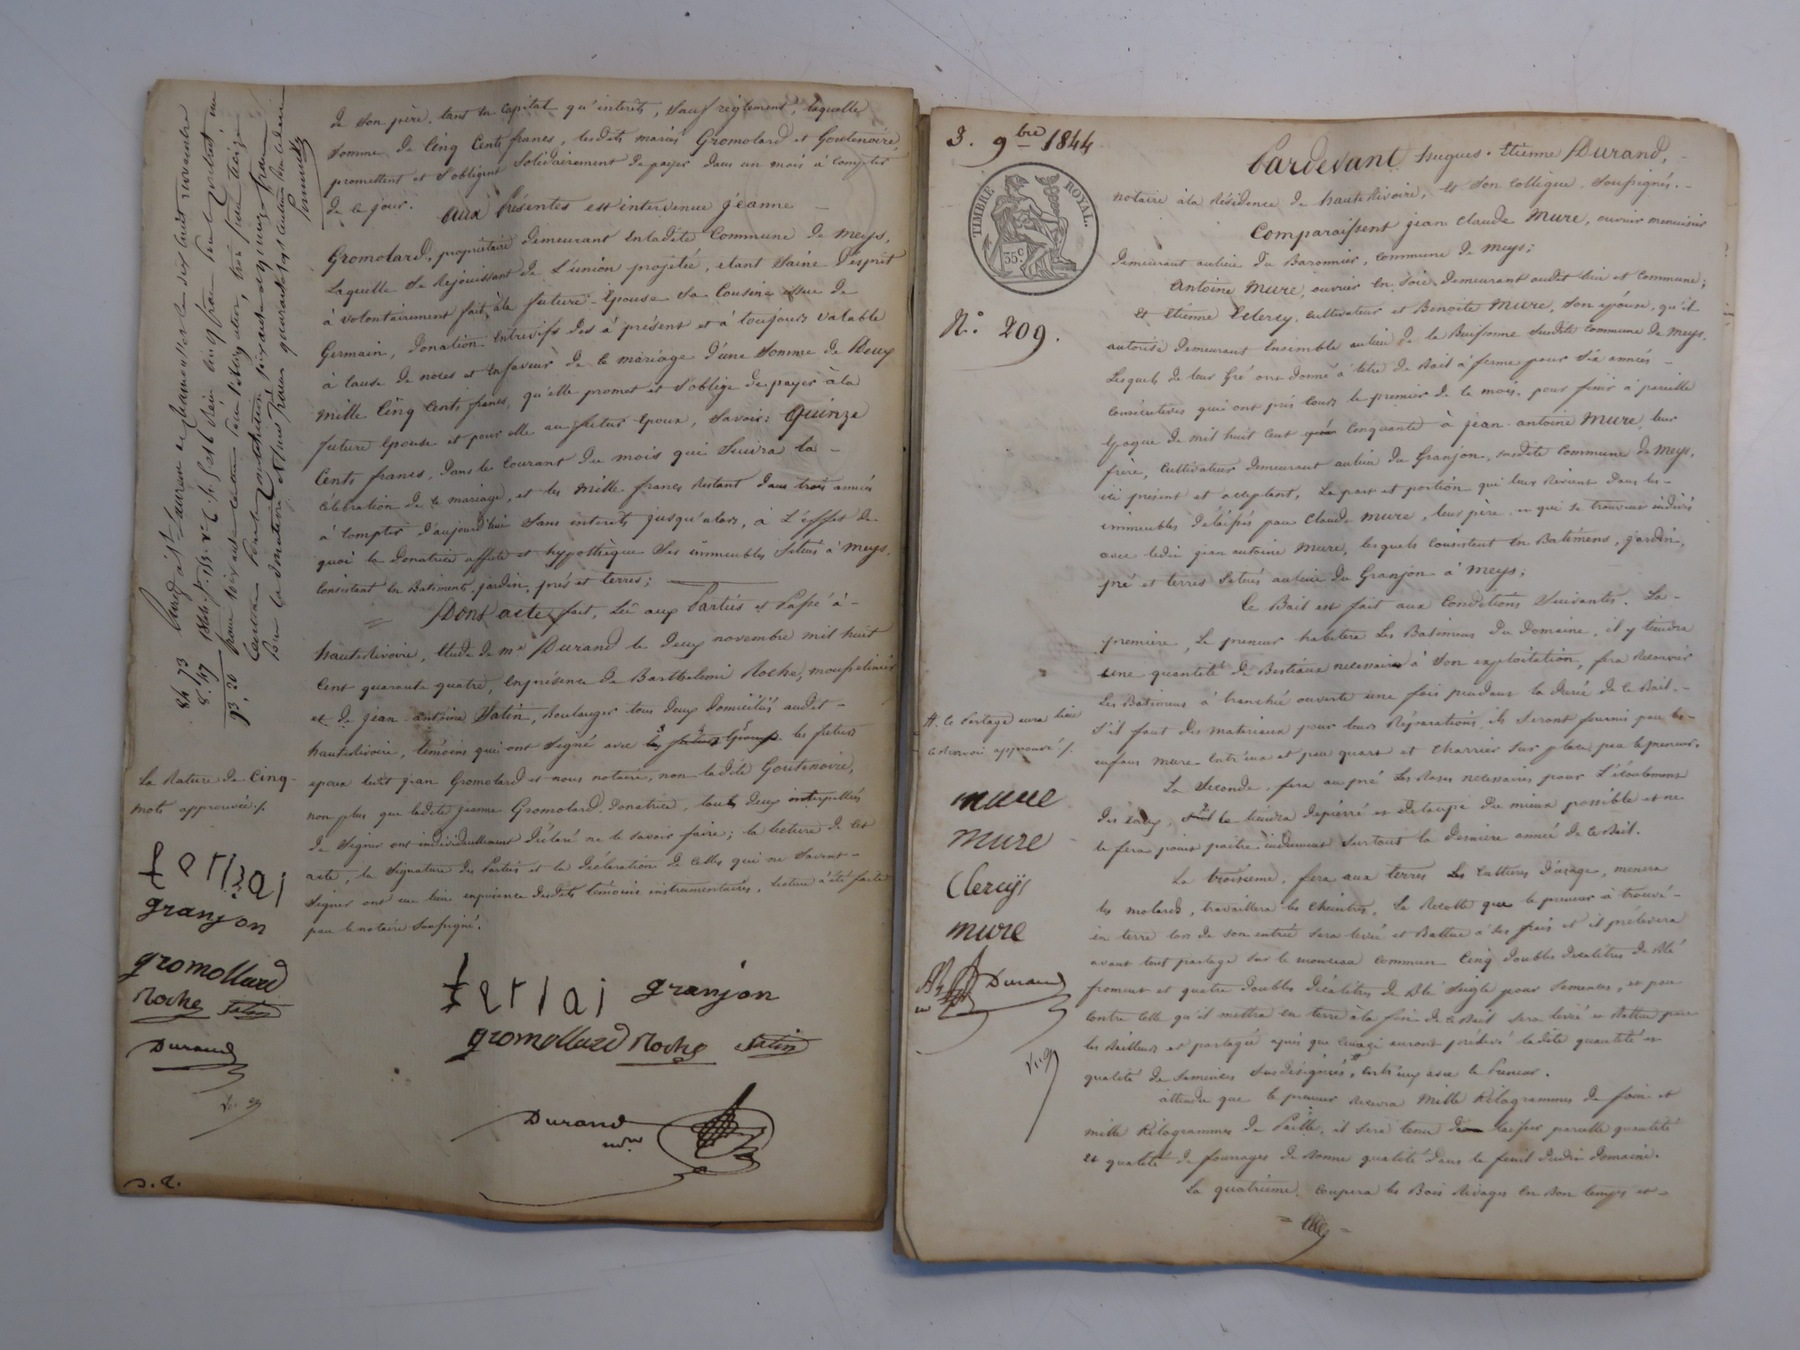 de son père, tant en capital qu'interêts, sauf règlement, laquelle
somme de Cinq Cents francs, lesdits mariés Gromolard et Goutenoire,
promettent et s'obligent solidairement de payer dans un mois à compter
de ce jour.
aux Présentes est intervenue jeanne
Gromolard, propriétaire demeurant en ladite Commune de meys,
Laquelle se Rejouissant de L'union projetée, étant saine d'esprit
à volontairement fait à la future Epouse sa Cousine issue de
Germain, donation entrevifs dès à présent et à toujours valable
à cause de noces et en faveur de ce mariage d'une somme de Deux
mille Cinq Cents francs, qu'elle promet et s'oblige de payer à la
future épouse et pour elle au futur époux, savoir: Quinze
Cents francs, dans le courant du mois qui suivra la
célébration de ce mariage, et les mille francs restant dans trois années
à compter d'aujourd'hui sans interêts jusqu'alors, à L'effet de
quoi la donatrice affecte et hypothèque ses immeubles situés à meys,
consistant en Batiments, jardin, prés et terres;
Dont acte, fait, Lû aux Parties et Passé à
hauterivoire, étude de me Durand le deux novembre mil huit
Cent quarante quatre, en présence de Barthelemi Roche,
et de jean antoine Satin, boulanger tous deux domiciliés audit
hauterivoire, témoins qui ont signé avec les futurs Epoux les futurs
epoux ledit jean Gromolard et nous notaire, non ladite Goutenoire,
non plus que ladite jeanne Gromolard donatrice, tous deux interpellés
de signer ont individuellement déclaré ne le savoir faire; la lecture de cet
acte, la signature des Parties et la déclaration de celles qui ne savent
signer ont eu lieu en présence desdits témoins instrumentaires, lecture à été faite
par le notaire soussigné.
La Rature de Cinq
mots approuvée ./.
granjon
gromollard
Roche Satin
Durand
granjon
gromollard Roche Satin
Durand
nore
3. 9bre 1844
TIMBRE ROYAL.
35c
N.º 209.
Pardevant hugues Etienne Durand,
notaire à la Résidence de hauterivoire, et son collègue, soussignés.
Comparaissent jean Claude Mure, ouvrier menuisier
demeurant au lieu du Baronnier, commune de meys;
Antoine Mure, ouvrier en soie, demeurant audit lieu et commune;
Et Etienne Clercy, cultivateur et Benoite Mure, son épouse, qu'il
autorise demeurant ensemble au lieu de la Buissonne susdite commune de meys,
Lesquels de leur gré ont donné à titre de Bail à ferme pour six années
consécutives qui ont pris cours le premier de ce mois, pour finir à pareille
époque de mil huit cent cinquante à jean antoine Mure, leur
frère, cultivateur demeurant au lieu du Granjon, susdite commune de meys,
ici présent et acceptant, La part et portion qui leur revient dans les
immeubles délaissés par Claude Mure, leur père, et qui se trouvent indivis
avec ledit jean antoine Mure, lesquels consistent en Batimens, jardin,
pré et terres situés au lieu du Granjon à Meys;
Ce Bail est fait aux Conditions suivantes. La
première, Le preneur habitera Les Batimens du domaine, il y tiendra
une quantité de Bestiaux nécessaires à son exploitation, fera recouvrir
Les Batimens à tranchée ouverte une fois pendant la durée de ce Bail.
s'il faut des materiaux pour leurs Réparations, ils seront fournis par les
enfans Mure entr'eux et par quart et charriés sur place par le preneur.
La seconde, fera au pré Les Rases nécessaires pour L'écoulement
des eaux, le tiendra dépierré et détaupé du mieux possible et ne
le fera point paitre induement surtout la dernière année de ce Bail.
La troisième, fera aux terres Les Cultures d'usage, menera
les molards, travaillera les Cheintres, La Recolte que le preneur à trouvé
en terre lors de son entrée sera levée et Battue à ses frais et il prélevera
avant tout partage sur le monceau commun Cinq doubles décalitres de Blé
froment et quatre doubles décalitres de Blé seigle pour semences, et par
contre celle qu'il mettra en terre à la fin de ce Bail sera levée et Battue par
les Bailleurs et partagée après que ceux-ci auront prélevé ladite quantité et
qualité de semences susdésignées, entr'eux avec le Preneur.
attendu que le preneur recevra mille Kilogrammes de foin et
mille Kilogrammes de Paille, il sera tenu de laisser pareille quantité
et qualité de fourrages de bonne qualité dans le fenil dudit domaine.
La quatrième, coupera les Bois Rivages en son temps et
#. Ce Partage aura lieu
ce Renvoi approuvé ./.
mure
mure
Clercy
mure
Durand